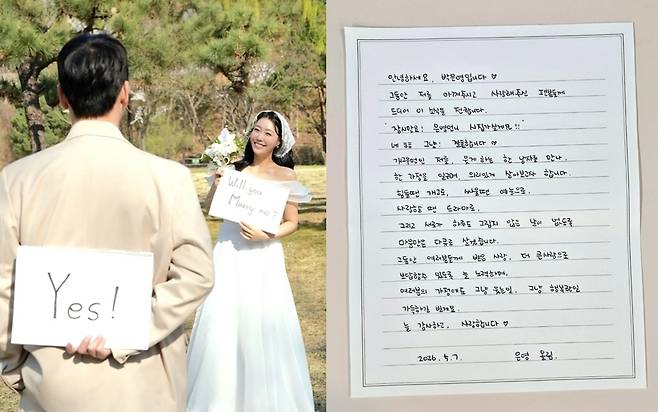 Yes!
Will you
Marry me?
안녕하세요, 박은영입니다 ♡
그동안 저를 아껴주시고 사랑해주신 팬분들께
드디어 이 소식을 전합니다.
"잠시만요! 은영언니 시집가실게요!!"
네 ㅎㅎ 그냥! 결혼합니다 ♡
개그우먼인 저를, 웃게 하는 한 남자를 만나
한 가정을 일구며, 의리있게 살아보고자 합니다.
힘들땐 개그로, 싸울땐 예능으로,
사랑할 땐 드라마로,
그리고 서로가 하루도 그립지 않은 날이 없도록
마음만은 다큐로 살겠습니다.
그동안 여러분들께 받은 사랑, 더 큰사랑으로
보답할수 있도록 늘 노력하며,
여러분의 가정에도 그냥 웃는일, 그냥 행복한일
가득하길 빌게요.
늘 감사하고, 사랑합니다 ♡
2026. 5. 7. 은영 올림.